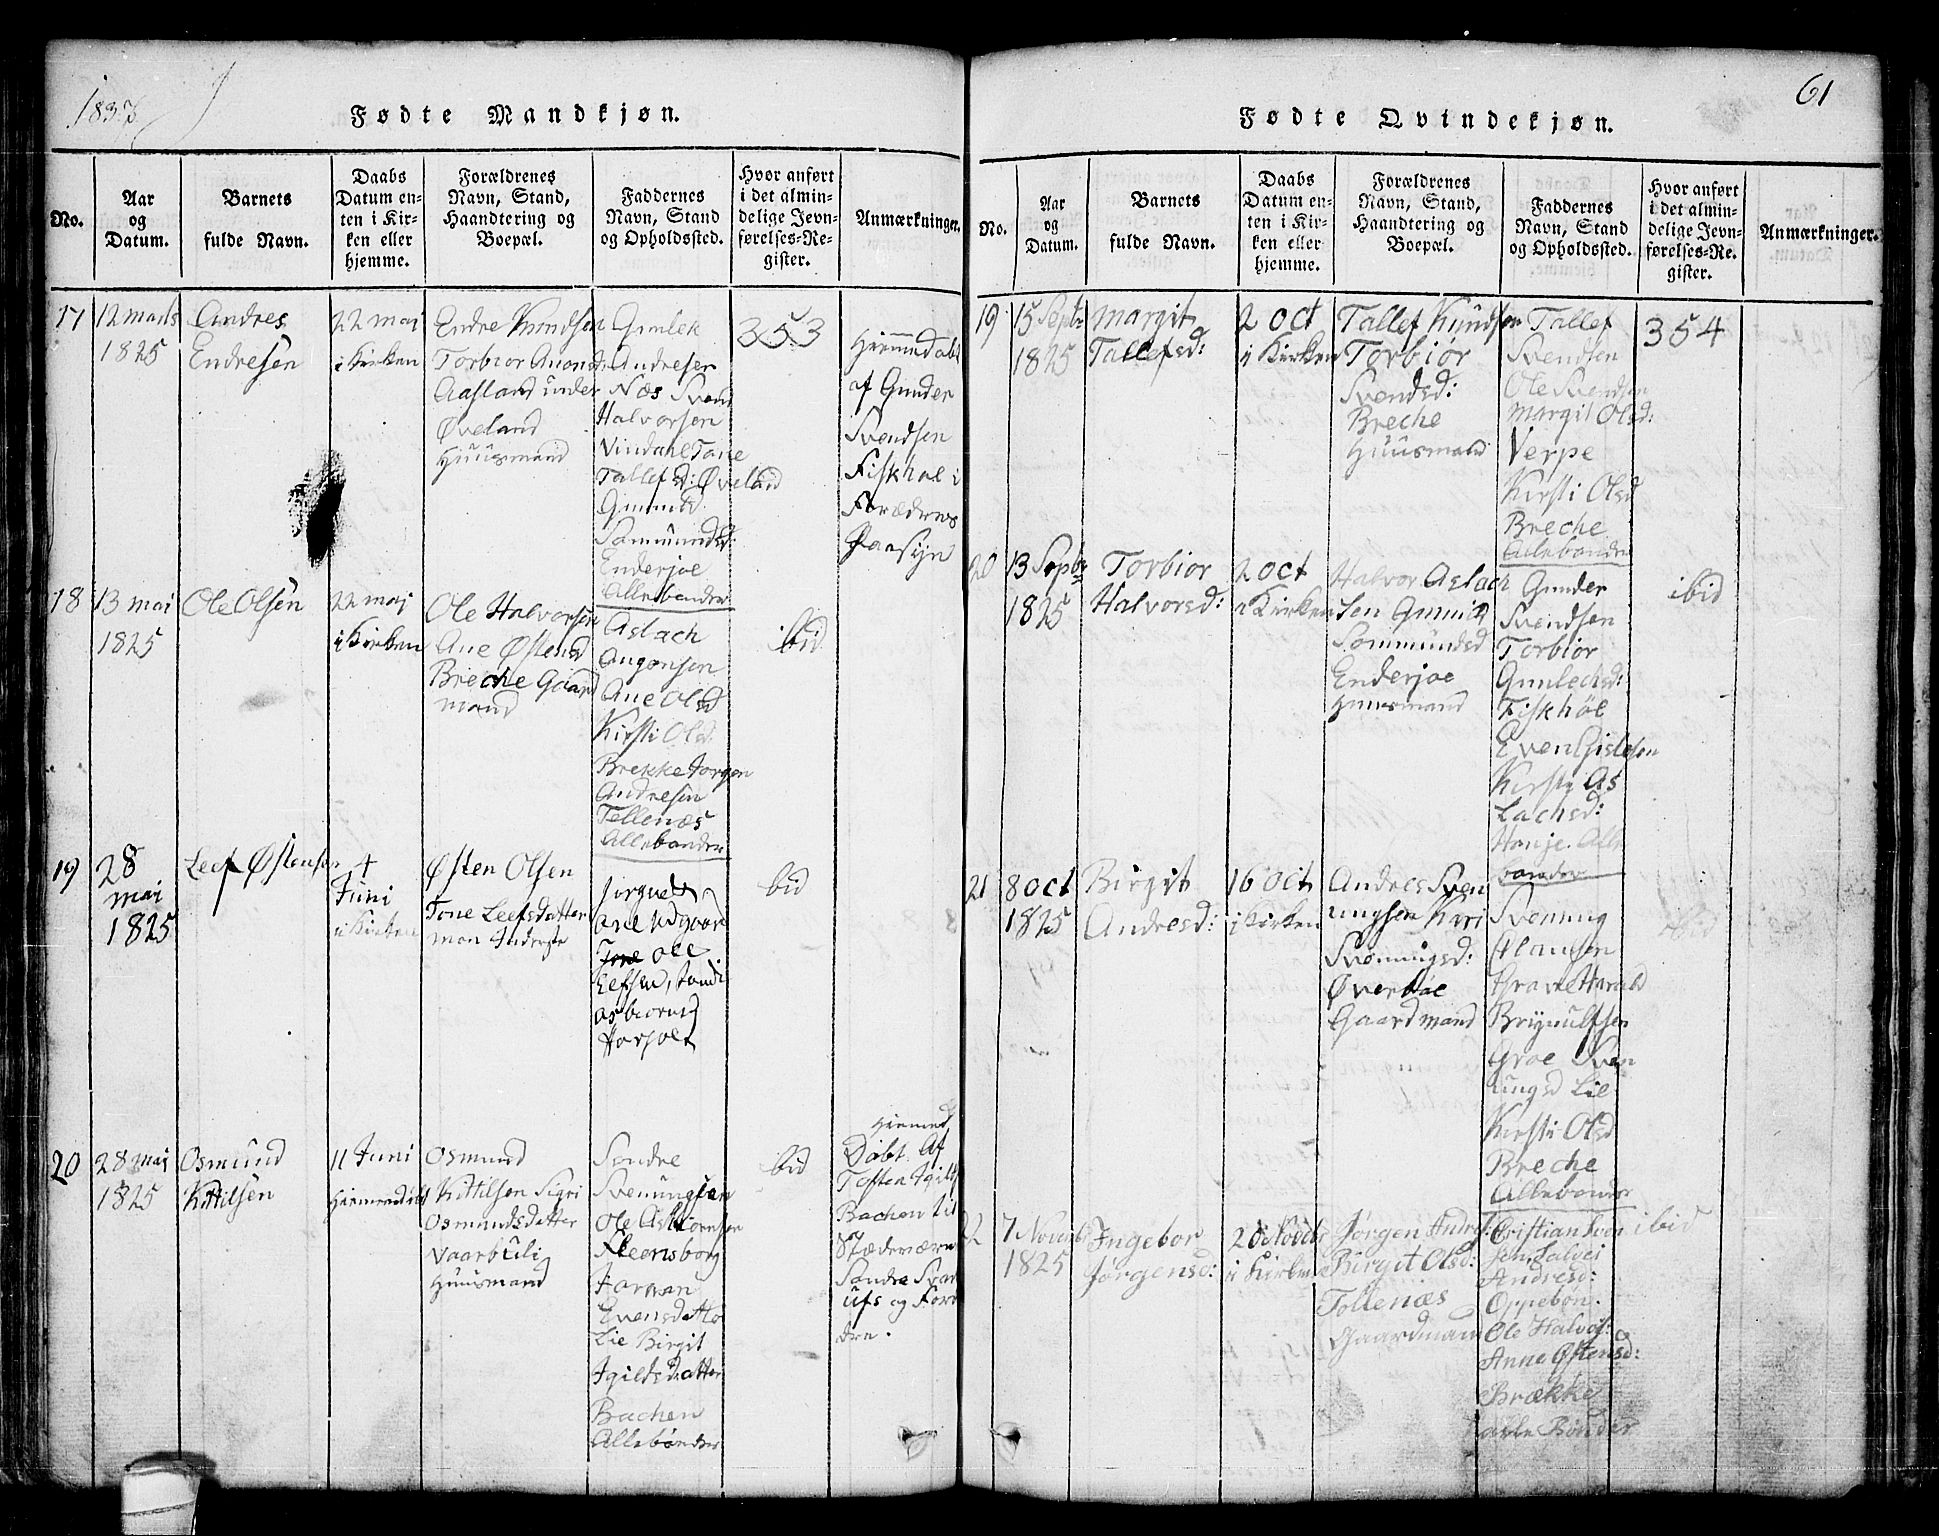 Fødte Mandkjøn.
No.
Aar
og
Datum.
Barnets
fulde Navn.
Daabs
Datum en-
ten i Kir-
ken eller
hjemme.
Forældrenes
Navn, Stand,
Haandtering og
Boepæl.
Faddernes
Navn, Stand
og Opholdssted.
Hvor anført
i det almin-
delige Jevn-
førelses-Re-
gister.
Anmærkninger.
17
12 marts
1825
Andres
Endresen
22 maj
i Kirken
Endre Knudsen
Torbior Amonds
Aasland under
Øveland
Huusmand
Gunlek
Andresen
Næs Svend
Halvorsen
Vindahl Tone
Tallefsd: Øveland
Gunnild
Sammundsd:
Enderjoe
Alle bønder
353
Hiemmedøbt
af Gunder
Svendsen
Fiskhøl i
Forædres
Paasyn
18
13 mai
1825
Ole Olsen
22 maj
i Kirken
Ole Halvorsen
Ane Østensd
Breche Gaard
mand
Aslach
Angonsen
Ane Olsd
Kirsti Olsd
Brekke Jorgen
Andresen
Tellenæs
Alle bønder
ibid
19
28
mai
1825
Leef Østensen
4
Juni
i Kirken
Østen Olsen
Tone Leefsdatter
Ole
bid
20
28 maj
1825
Osmund
Kittilsen
11 Juni
Hiemmedøbt
Osmund
Kittilsen Sigri
Osmundsdatter
Vaarbuli
Huusmand
Sondre
Svenungsen
Ole Asbiornsen
Evensdatte
Lie Birgit
Igildsdatter
Bachen
Alle bønder
bid
Hiemmed
Døbt Af
Tosten Igils
Bachen til
Stædeværn
Sondre
og Foræ
dre.
61
Fødte Qvindekjøn.
No.
Aar
og
Datum.
Barnets
fulde Navn.
Daabs
Datum en-
ten i Kir-
ken eller
hjemme.
Forældrenes
Navn, Stand,
Haandtering og
Boepæl.
Faddernes
Navn, Stand
og Opholdssted.
Hvor anført
i det almin-
delige Jevn-
førelses-Re-
gister.
Anmærkninger.
19
15 Septbr
1825
Margit
Tallefsd:
2 oct
i Kirken
Tallef Knudsen
Torbiør
Svendsd:
Breche
Huusmand
Tallef
Svendsen
Ole Svendsen
Margit Olsd:
Verpe
Kirsti Olsd
Breche
Alle bønder
354
20
13 Septbr
1825
Torbior
Halvorsd:
2 oct
i Kirken
Halvor Aslach
sen Gunild
Sommundsd
Enderjoe
Huusmand
Gunder
Svendsen
Torbior
Gunlechsd:
Fiskhøl
Even Gislesen
Kirsti As
lachsd:
Hanje. Alle
bønder
ibid
21
8 oct
1825
Birgit
Andresd:
16 Oct
i Kirken
Andres Sven
ungsen Kari
Svennugsd:
Øverbøe
Gaardmand
Svenung
Clausen
Grave Harald
Brynulfsen
Groe Sven
ungsd Lie
Kirsti Olsd
Breche
Alle bønder
ibid
22
7 Novemb
1825
Ingebor
Jørgensd:
20 Novbr
i Kirken
Jørgen Andres:
Birgit Olsd:
Tollenæs
Gaardmand
Cristian Iver
sen, Talvei
Andresd:
Oppebøn.
Ole Halvos:
Anne Østensd:
Brække
alle Bønder
ibid